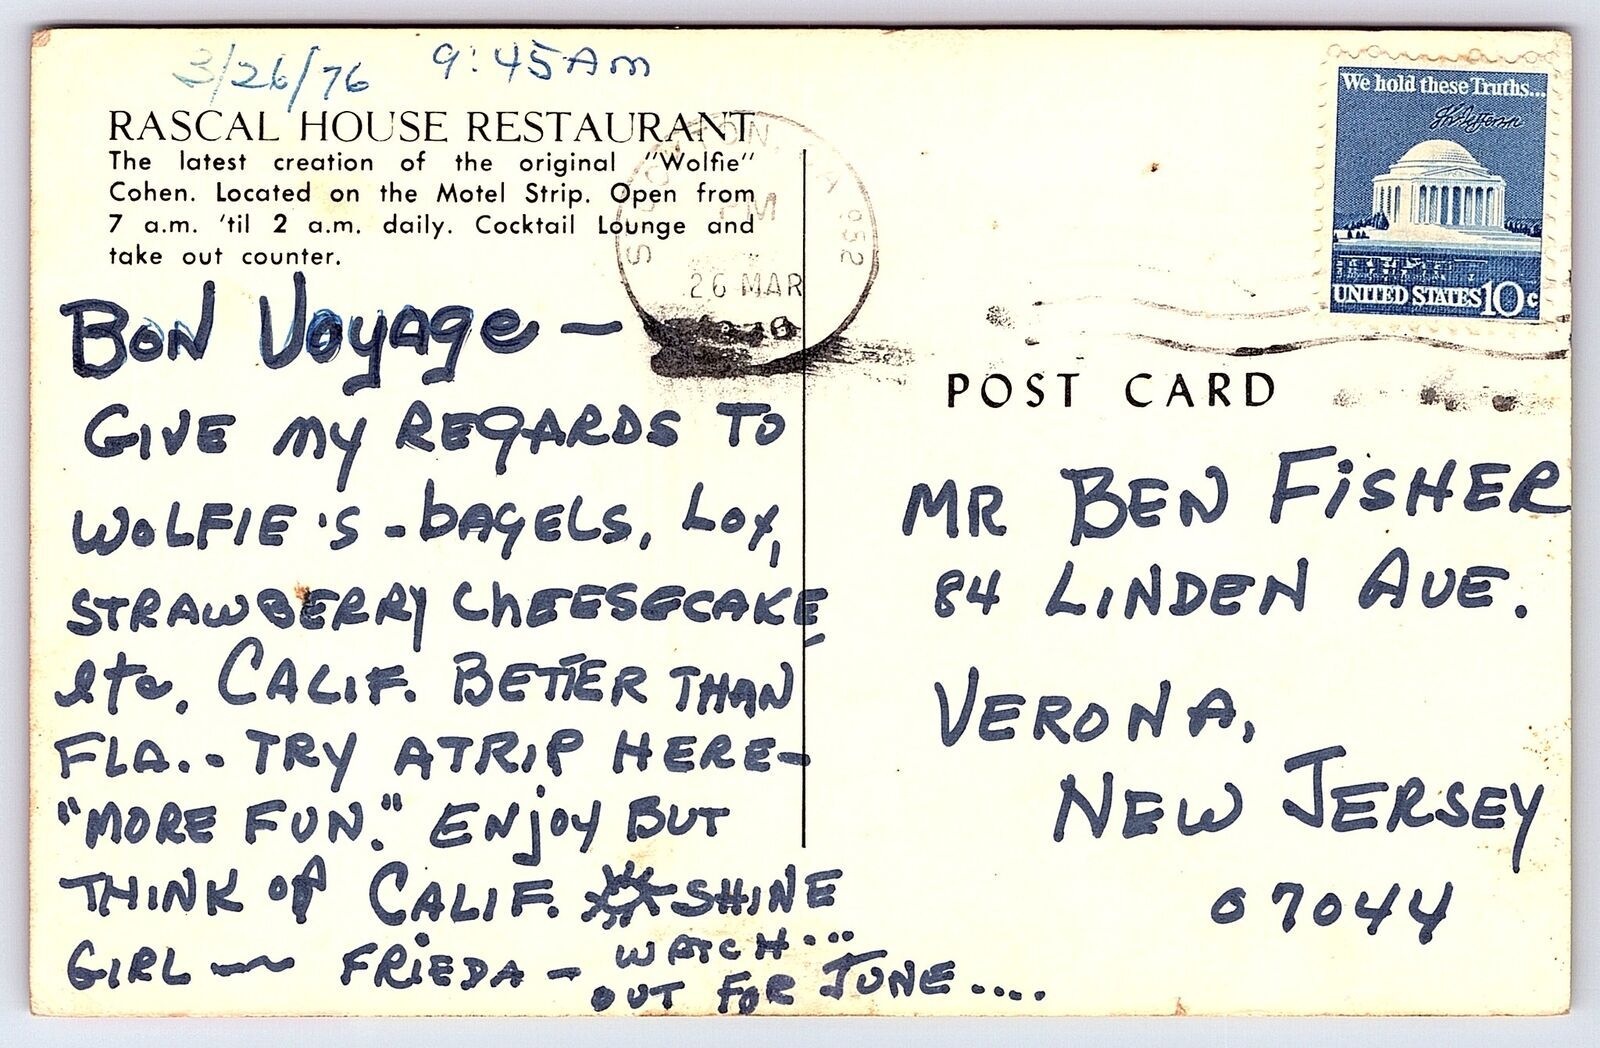 3/26/76 9:45 Am
RASCAL HOUSE RESTAURANT
The latest creation of the original "Wolfie"
Cohen. Located on the Motel Strip. Open from
7 a.m. 'til 2 a.m. daily. Cocktail Lounge and
take out counter.
BON VOYAGE —
GIVE MY REGARDS TO
WOLFIE'S - BAGELS, LOX,
STRAWBERRY CHEESECAKE,
etc. CALIF. BETTER THAN
FLA.. TRY A TRIP HERE -
"MORE FUN." ENJOY BUT
THINK OF CALIF. SHINE
GIRL — FRIEDA - WATCH...
OUT FOR JUNE....
PM
26 MAR
952
We hold these Truths...
Th Jefferson
UNITED STATES 10c
POST CARD
MR BEN FISHER
84 LINDEN AVE.
VERONA,
NEW JERSEY
07044